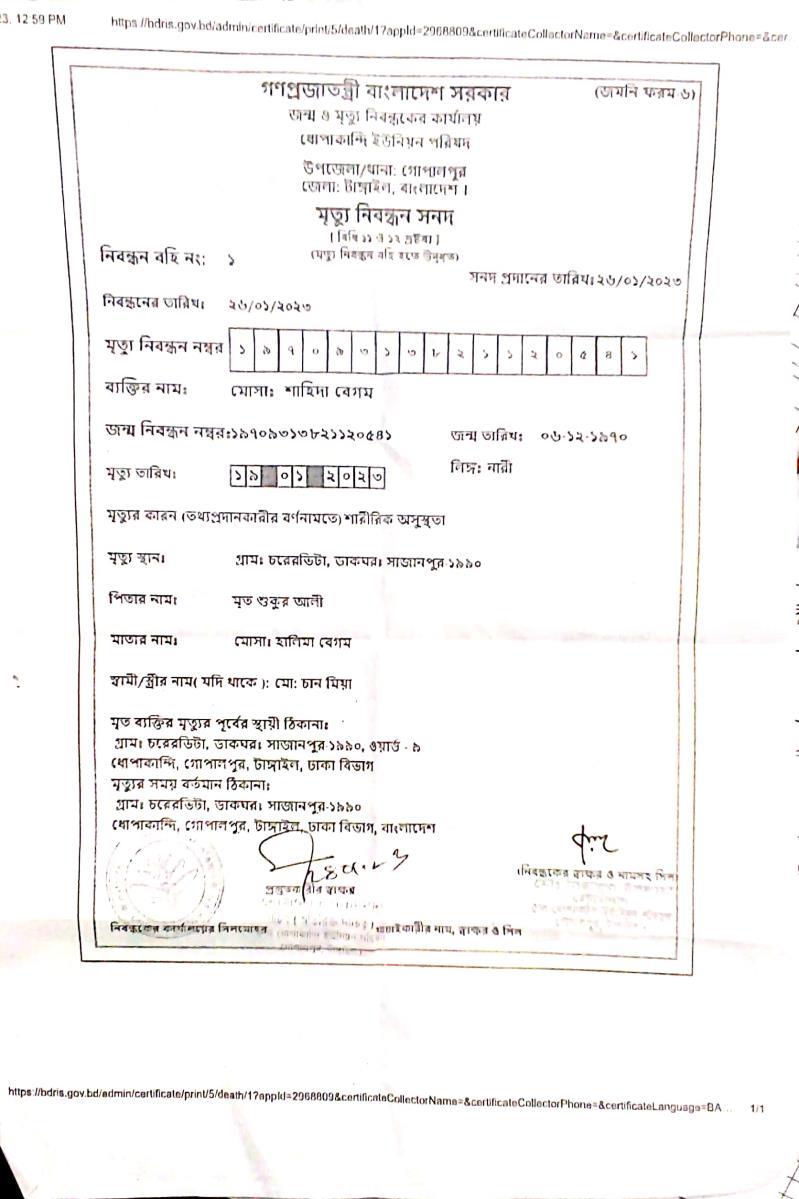 3, 12:59 PM https://bdris.gov.bd/admin/certificate/print/5/death/1?appId=2968809&certificateCollectorName=&certificateCollectorPhone=&cer
গণপ্রজাতন্ত্রী বাংলাদেশ সরকার (জমনি ফরম-৬)
জন্ম ও মৃত্যু নিবন্ধকের কার্যালয়
ধোপাকান্দি ইউনিয়ন পরিষদ
উপজেলা/থানা: গোপালপুর
জেলা: টাঙ্গাইল, বাংলাদেশ ।
মৃত্যু নিবন্ধন সনদ
[ বিধি ১১ ও ১২ দ্রষ্টব্য ]
নিবন্ধন বহি নং: ১ (মৃত্যু নিবন্ধন বহি হতে উদ্ধৃত)
সনদ প্রদানের তারিখ: ২৬/০১/২০২৩
নিবন্ধনের তারিখ: ২৬/০১/২০২৩
মৃত্যু নিবন্ধন নম্বর ১ ৯ ৭ ০ ৯ ৩ ১ ৩ ৮ ২ ১ ১ ২ ০ ৫ ৪ ১
ব্যক্তির নাম: মোসা: শাহিদা বেগম
জন্ম নিবন্ধন নম্বর:১৯৭০৯৩১৩৮২১১২০৫৪১ জন্ম তারিখ: ০৬-১২-১৯৭০
মৃত্যু তারিখ: ১ ৯ ০ ১ ২ ০ ২ ৩ লিঙ্গ: নারী
মৃত্যুর কারন (তথ্যপ্রদানকারীর বর্ণনামতে) শারীরিক অসুস্থতা
মৃত্যু স্থান: গ্রাম: চরেরভিটা, ডাকঘর: সাজানপুর-১৯৯০
পিতার নাম: মৃত শুকুর আলী
মাতার নাম: মোসা: হালিমা বেগম
স্বামী/স্ত্রীর নাম( যদি থাকে ): মো: চান মিয়া
মৃত ব্যক্তির মৃত্যুর পূর্বের স্থায়ী ঠিকানা:
গ্রাম: চরেরভিটা, ডাকঘর: সাজানপুর-১৯৯০, ওয়ার্ড - ৯
ধোপাকান্দি, গোপালপুর, টাঙ্গাইল, ঢাকা বিভাগ
মৃত্যুর সময় বর্তমান ঠিকানা:
গ্রাম: চরেরভিটা, ডাকঘর: সাজানপুর-১৯৯০
ধোপাকান্দি, গোপালপুর, টাঙ্গাইল, ঢাকা বিভাগ, বাংলাদেশ
(নিবন্ধকের স্বাক্ষর ও নামসহ সিল)
প্রস্তুতকারীর স্বাক্ষর
নিবন্ধকের কার্যালয়ের সিলমোহর যাচাইকারীর নাম, স্বাক্ষর ও সিল
https://bdris.gov.bd/admin/certificate/print/5/death/1?appId=2968809&certificateCollectorName=&certificateCollectorPhone=&certificateLanguage=BA... 1/1